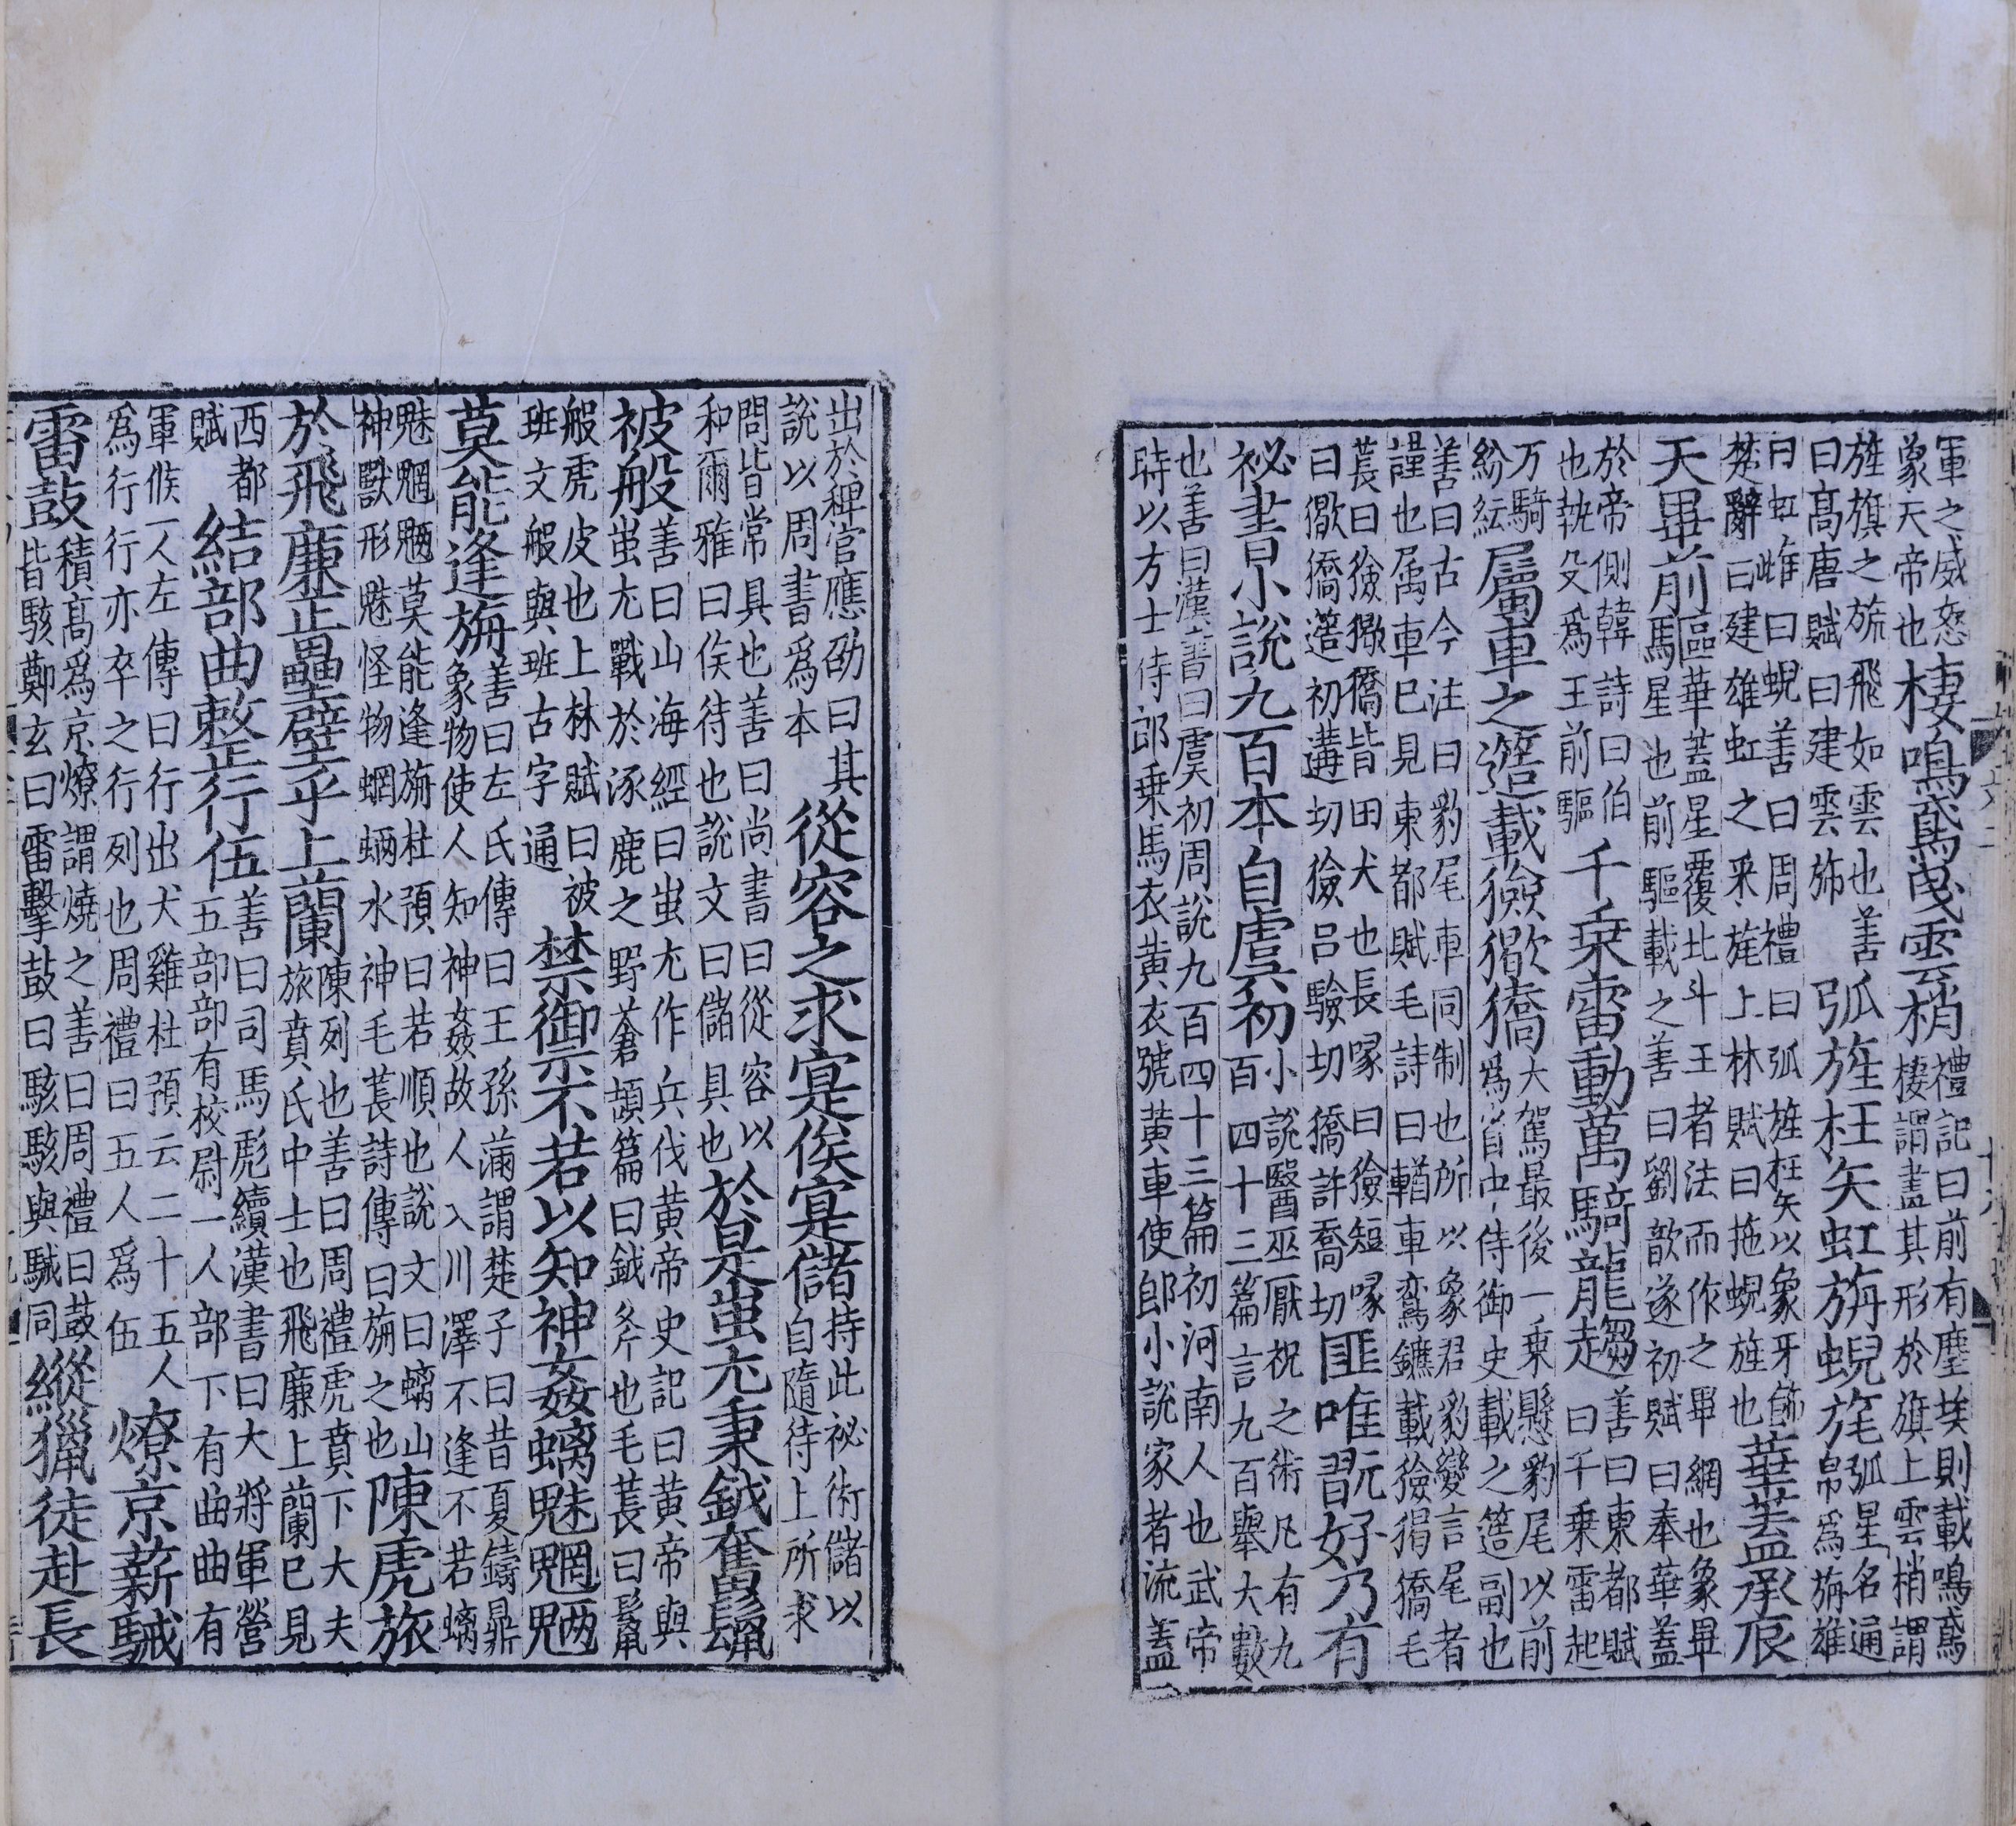 軍之威怒象天帝也棲鳴鳶曳雲梢禮記曰前有塵埃則載鳴鳶棲謂盖其形於旗上雲梢謂
旌旗之旒飛如雲也善曰髙唐賦曰建雲斾弧旌枉矢虹旃蜺旄弧星名通帛爲旃雄
曰虹雌曰蜺善曰周禮曰弧旌枉矢以象牙飾楚辭曰建雄虹之采旄上林賦曰拖蜺旌也華蓋承辰
天畢前驅華蓋星覆北斗王者法而作之畢網也象畢馬星也前驅載之善曰劉歆遂初賦曰奉華蓋
於帝側韓詩曰伯也執殳爲王前驅千乗雷動萬騎龍趨善曰東都賦曰千乗雷起
万騎紛紜屬車之簉載獫猲獢大駕最後一乗懸豹尾以前爲省中侍御史載之簉副也
善曰古今注曰豹尾車同制也所以象君豹變言尾者謹也屬車已見東都賦毛詩曰輶車鸞鑣載獫猲獢毛
萇曰獫獥獢皆田犬也長喙曰獫短喙曰獥獢簉初遘切獫呂驗切獢許喬切匪唯翫好乃有
祕書小說九百本自虞初小說醫巫厭祝之術凡有九百四十三篇言九百舉大數
也善曰漢書曰虞初周說九百四十三篇初河南人也武帝時以方士侍郎乗馬衣黃衣號黃車使郎小說家者流盖
出於稗官應劭曰其說以周書爲本從容之求寔俟寔儲持此祕術儲以自隨待上所求
問皆常具也善曰尚書曰從容以和爾雅曰俟待也說文曰儲具也於是蚩尤秉鉞奮鬣
被般善曰山海經曰蚩尤作兵伐黃帝史記曰黃帝與蚩尤戰於涿鹿之野蒼頡篇曰鉞斧也毛萇曰鬣
般虎皮也上林賦曰被班文般與班古字通禁御不若以知神姦螭魅魍魎
莫能逢旃善曰左氏傳曰王孫滿謂楚子曰昔夏鑄鼎象物使人知神姦故人入川澤不逢不若螭
魅魍魎莫能逢旃杜預曰若順也說文曰螭山神獸形魅怪物蝄蜽水神毛萇詩傳曰旃之也陳虎旅
於飛廉正壘壁乎上蘭陳列也善曰周禮虎賁下大夫旅賁氏中士也飛廉上蘭已見
西都賦結部曲整行伍善曰司馬彪續漢書曰大將軍營五部部有校尉一人部下有曲曲有
軍候一人左傳曰行出犬雞杜預云二十五人爲行行亦卒之行列也周禮曰五人爲伍燎京薪駴
雷鼓積髙爲京燎謂燒之善曰周禮曰鼓皆駭鄭玄曰雷擊鼓曰駭駭與駴同縱獵徒赴長